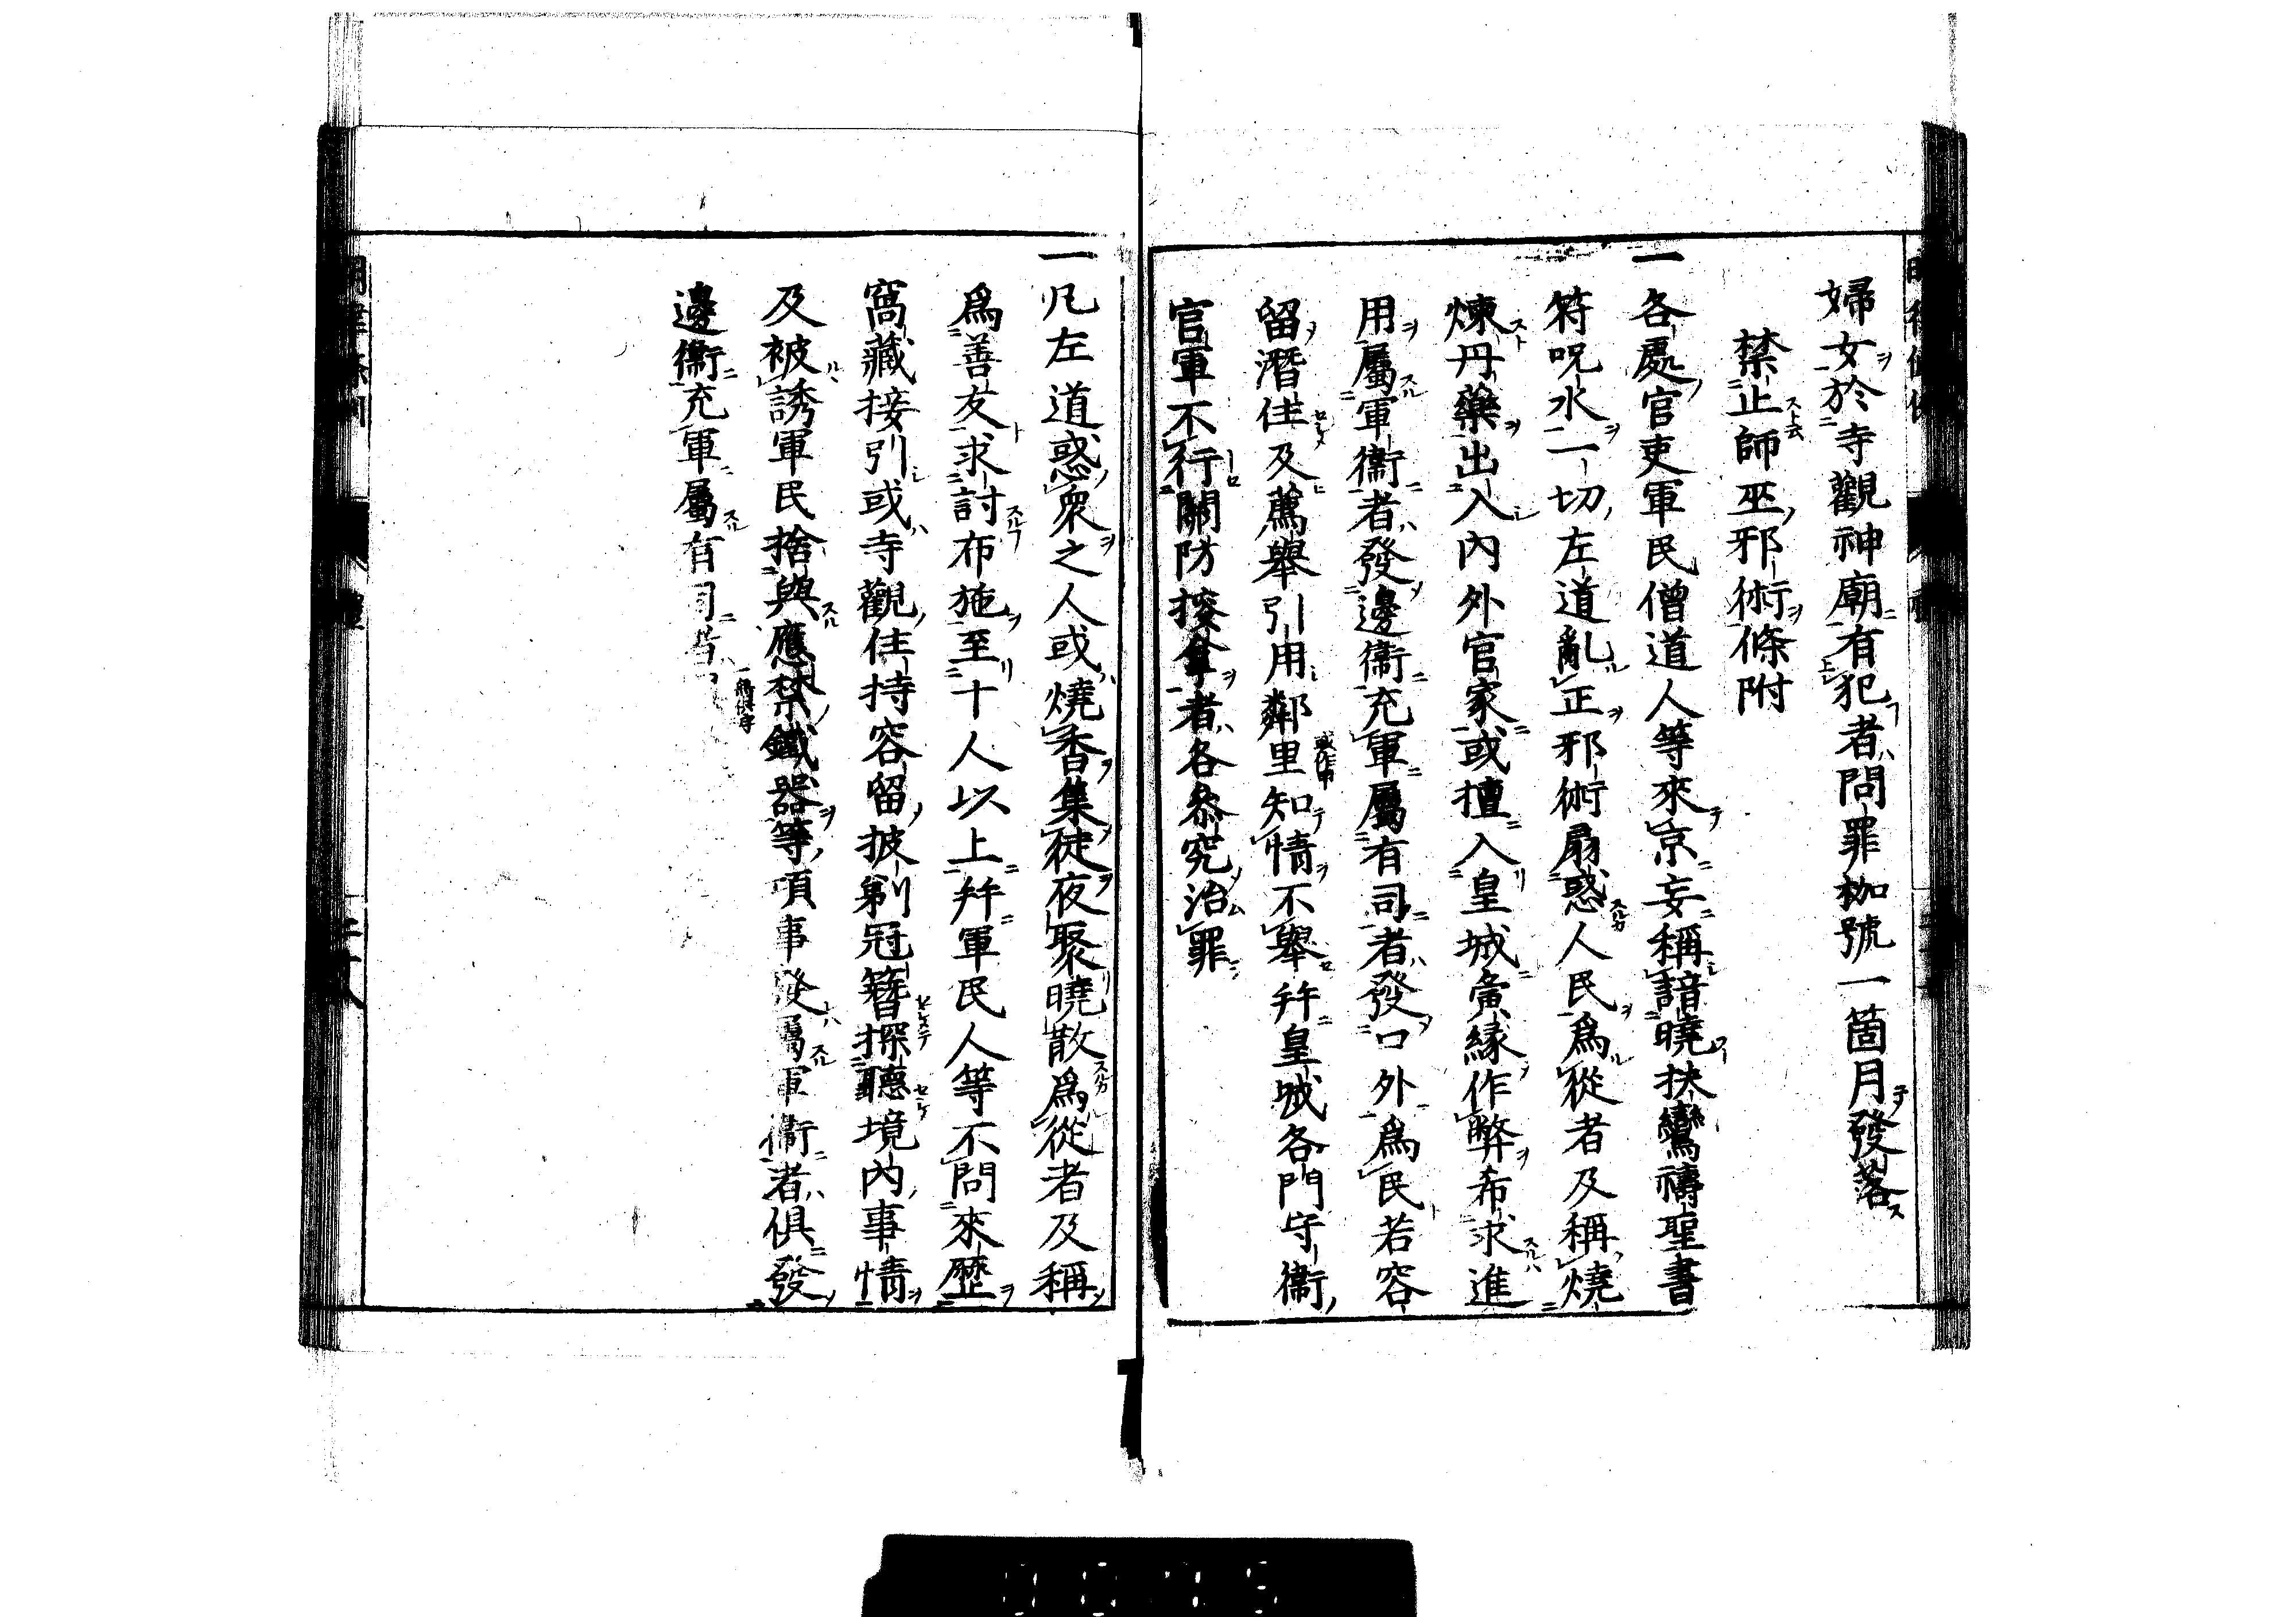 婦女於寺觀神廟有犯者問罪枷號一箇月發落
禁止師巫邪術條附
一各處官吏軍民僧道人等來京妄稱諳曉扶鸞禱聖書
符呪水一切左道亂正邪術扇惑人民爲從者及稱燒
煉丹藥出入內外官家或擅入皇城夤緣作弊希求進
用屬軍衞者發邊衞充軍屬有司者發口外爲民若容
留潛住及薦舉引用鄰里知情不舉幷皇城各門守衞
官軍不行關防搜拿者各參究治罪
一凡左道惑衆之人或燒香集徒夜聚曉散爲從者及稱
爲善友求討布施至十人以上幷軍民人等不問來歷
窩藏接引或寺觀住持容留披剃冠簪探聽境內事情
及被誘軍民捨與應禁鐵器等項事發屬軍衞者俱發
邊衞充軍屬有司